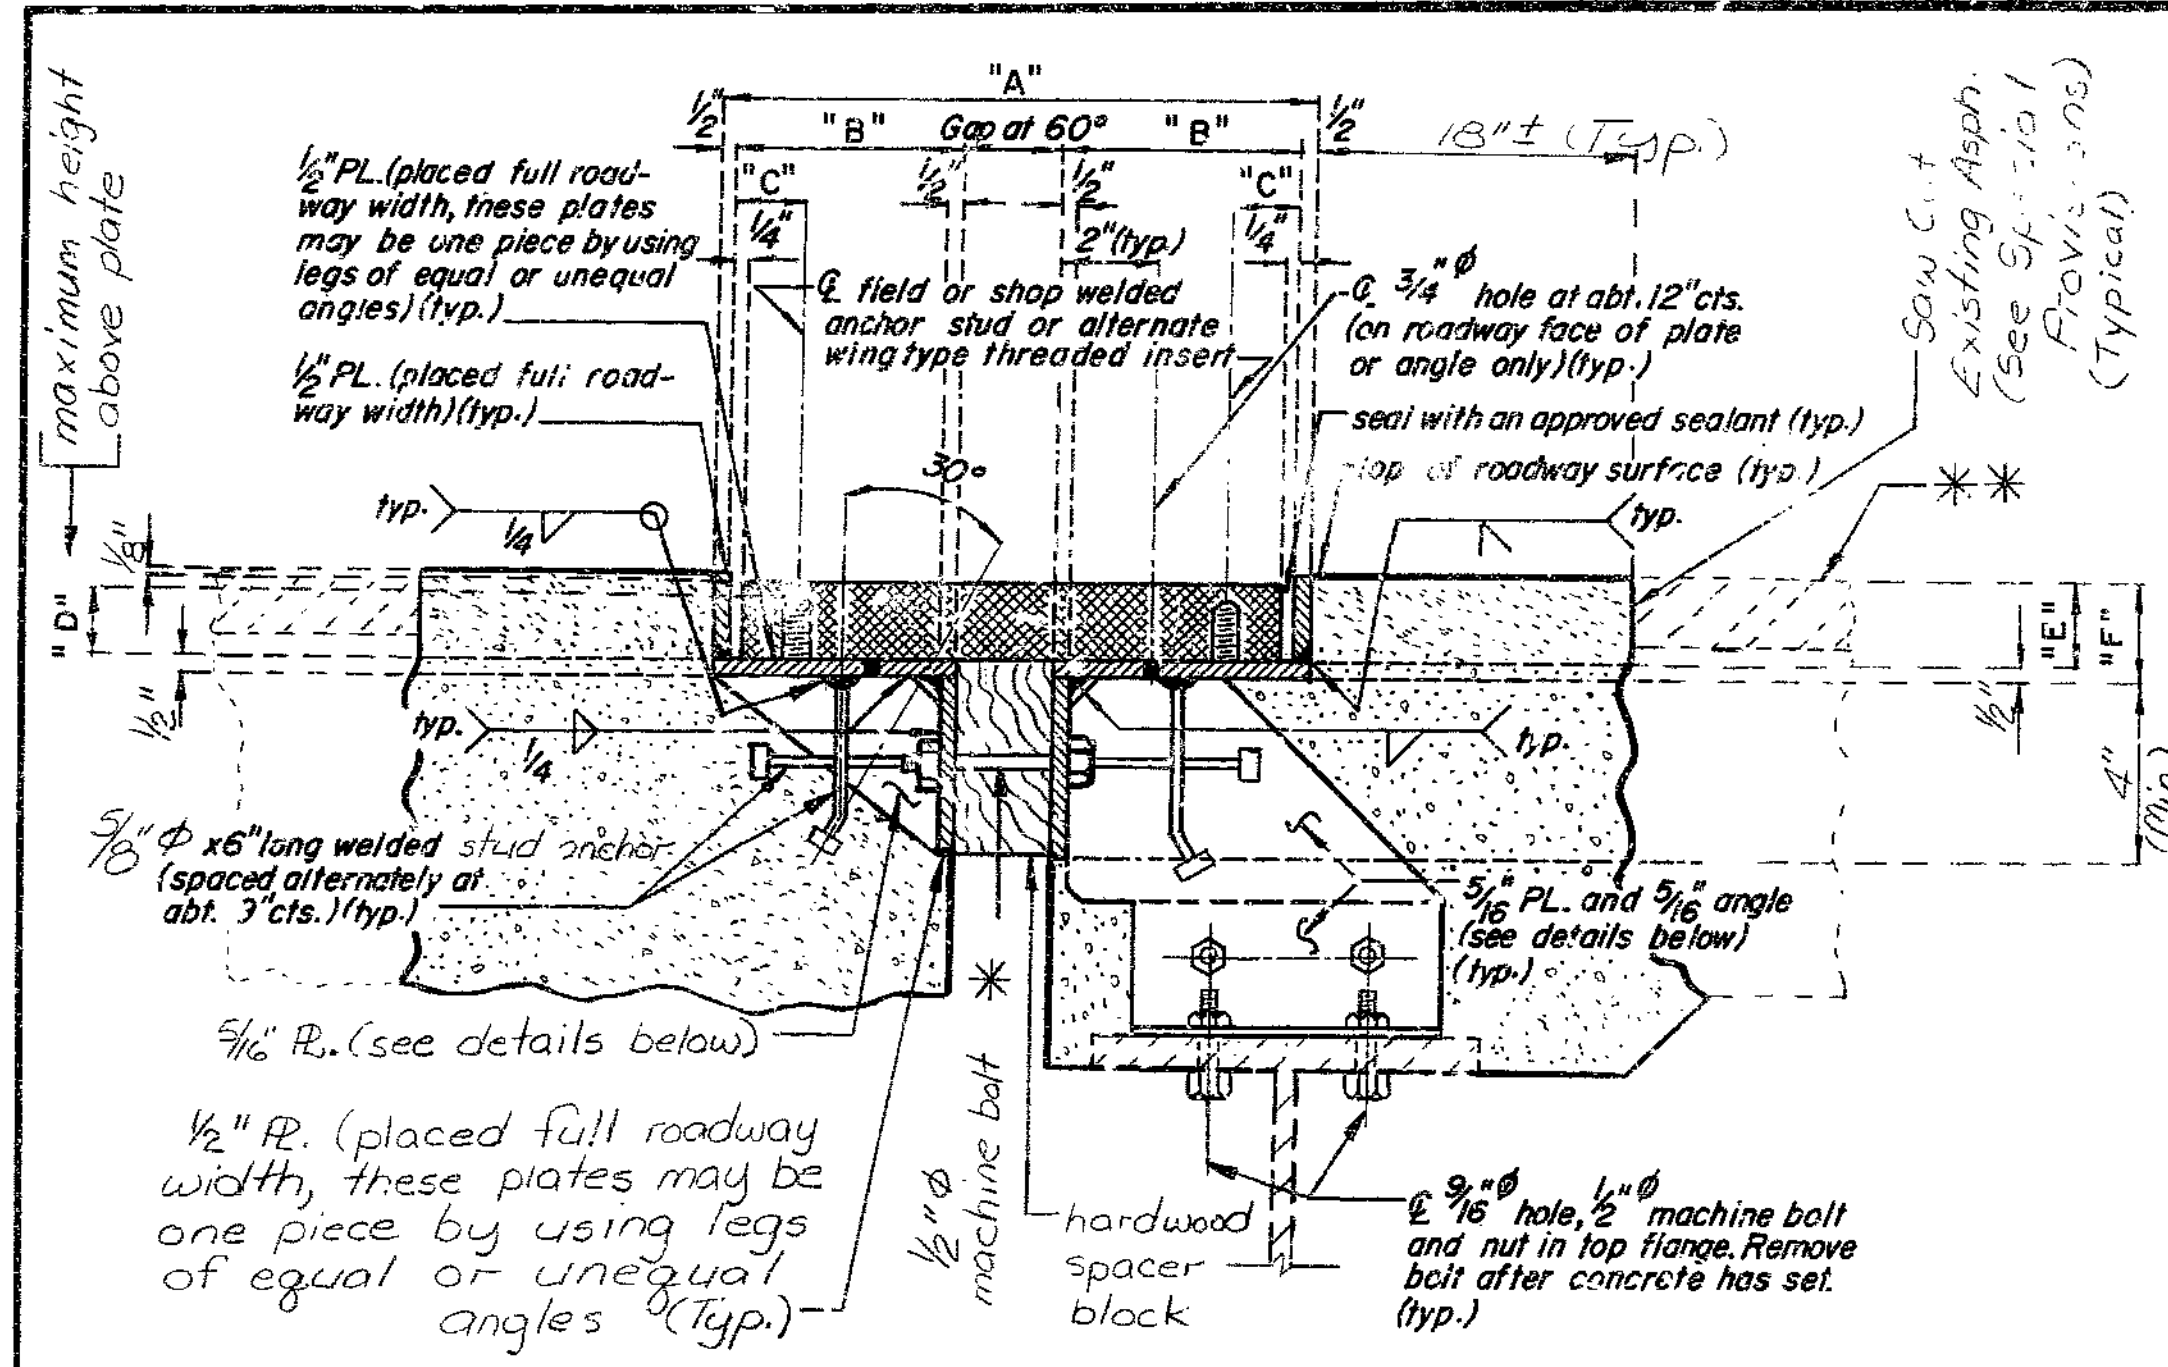 "A"
1/2"
1/2"
"B"
Gap at 60°
"B"
18"± (Typ.)
"C"
1/2"
1/2"
"C"
1/4"
2"(typ.)
1/4"
maximum height
above plate
1/2" PL. (placed full road-
way width, these plates
may be one piece by using
legs of equal or unequal
angles) (typ.)
℄ field or shop welded
anchor stud or alternate
wing type threaded insert
℄ 3/4" Ø hole at abt. 12" cts.
(on roadway face of plate
or angle only) (typ.)
Saw Cut
Existing Asph.
(See Special
Provisions)
(Typical)
1/2" PL. (placed full road-
way width) (typ.)
seal with an approved sealant (typ.)
top of roadway surface (typ.)
30°
**
typ.
1/4
typ.
1/8"
"D"
1/2"
"E"
"F"
1/2"
4"
(Min.)
typ.
1/4
typ.
5/8" Ø x6" long welded stud anchor
(spaced alternately at
abt. 9" cts.) (typ.)
5/16" PL. and 5/16" angle
(see details below)
(typ.)
*
5/16" PL. (see details below)
1/2" PL. (placed full roadway
width, these plates may be
one piece by using legs
of equal or unequal
angles (Typ.)
1/2" Ø
machine bolt
hardwood
spacer
block
℄ 9/16" Ø hole, 1/2" Ø machine bolt
and nut in top flange. Remove
bolt after concrete has set.
(typ.)